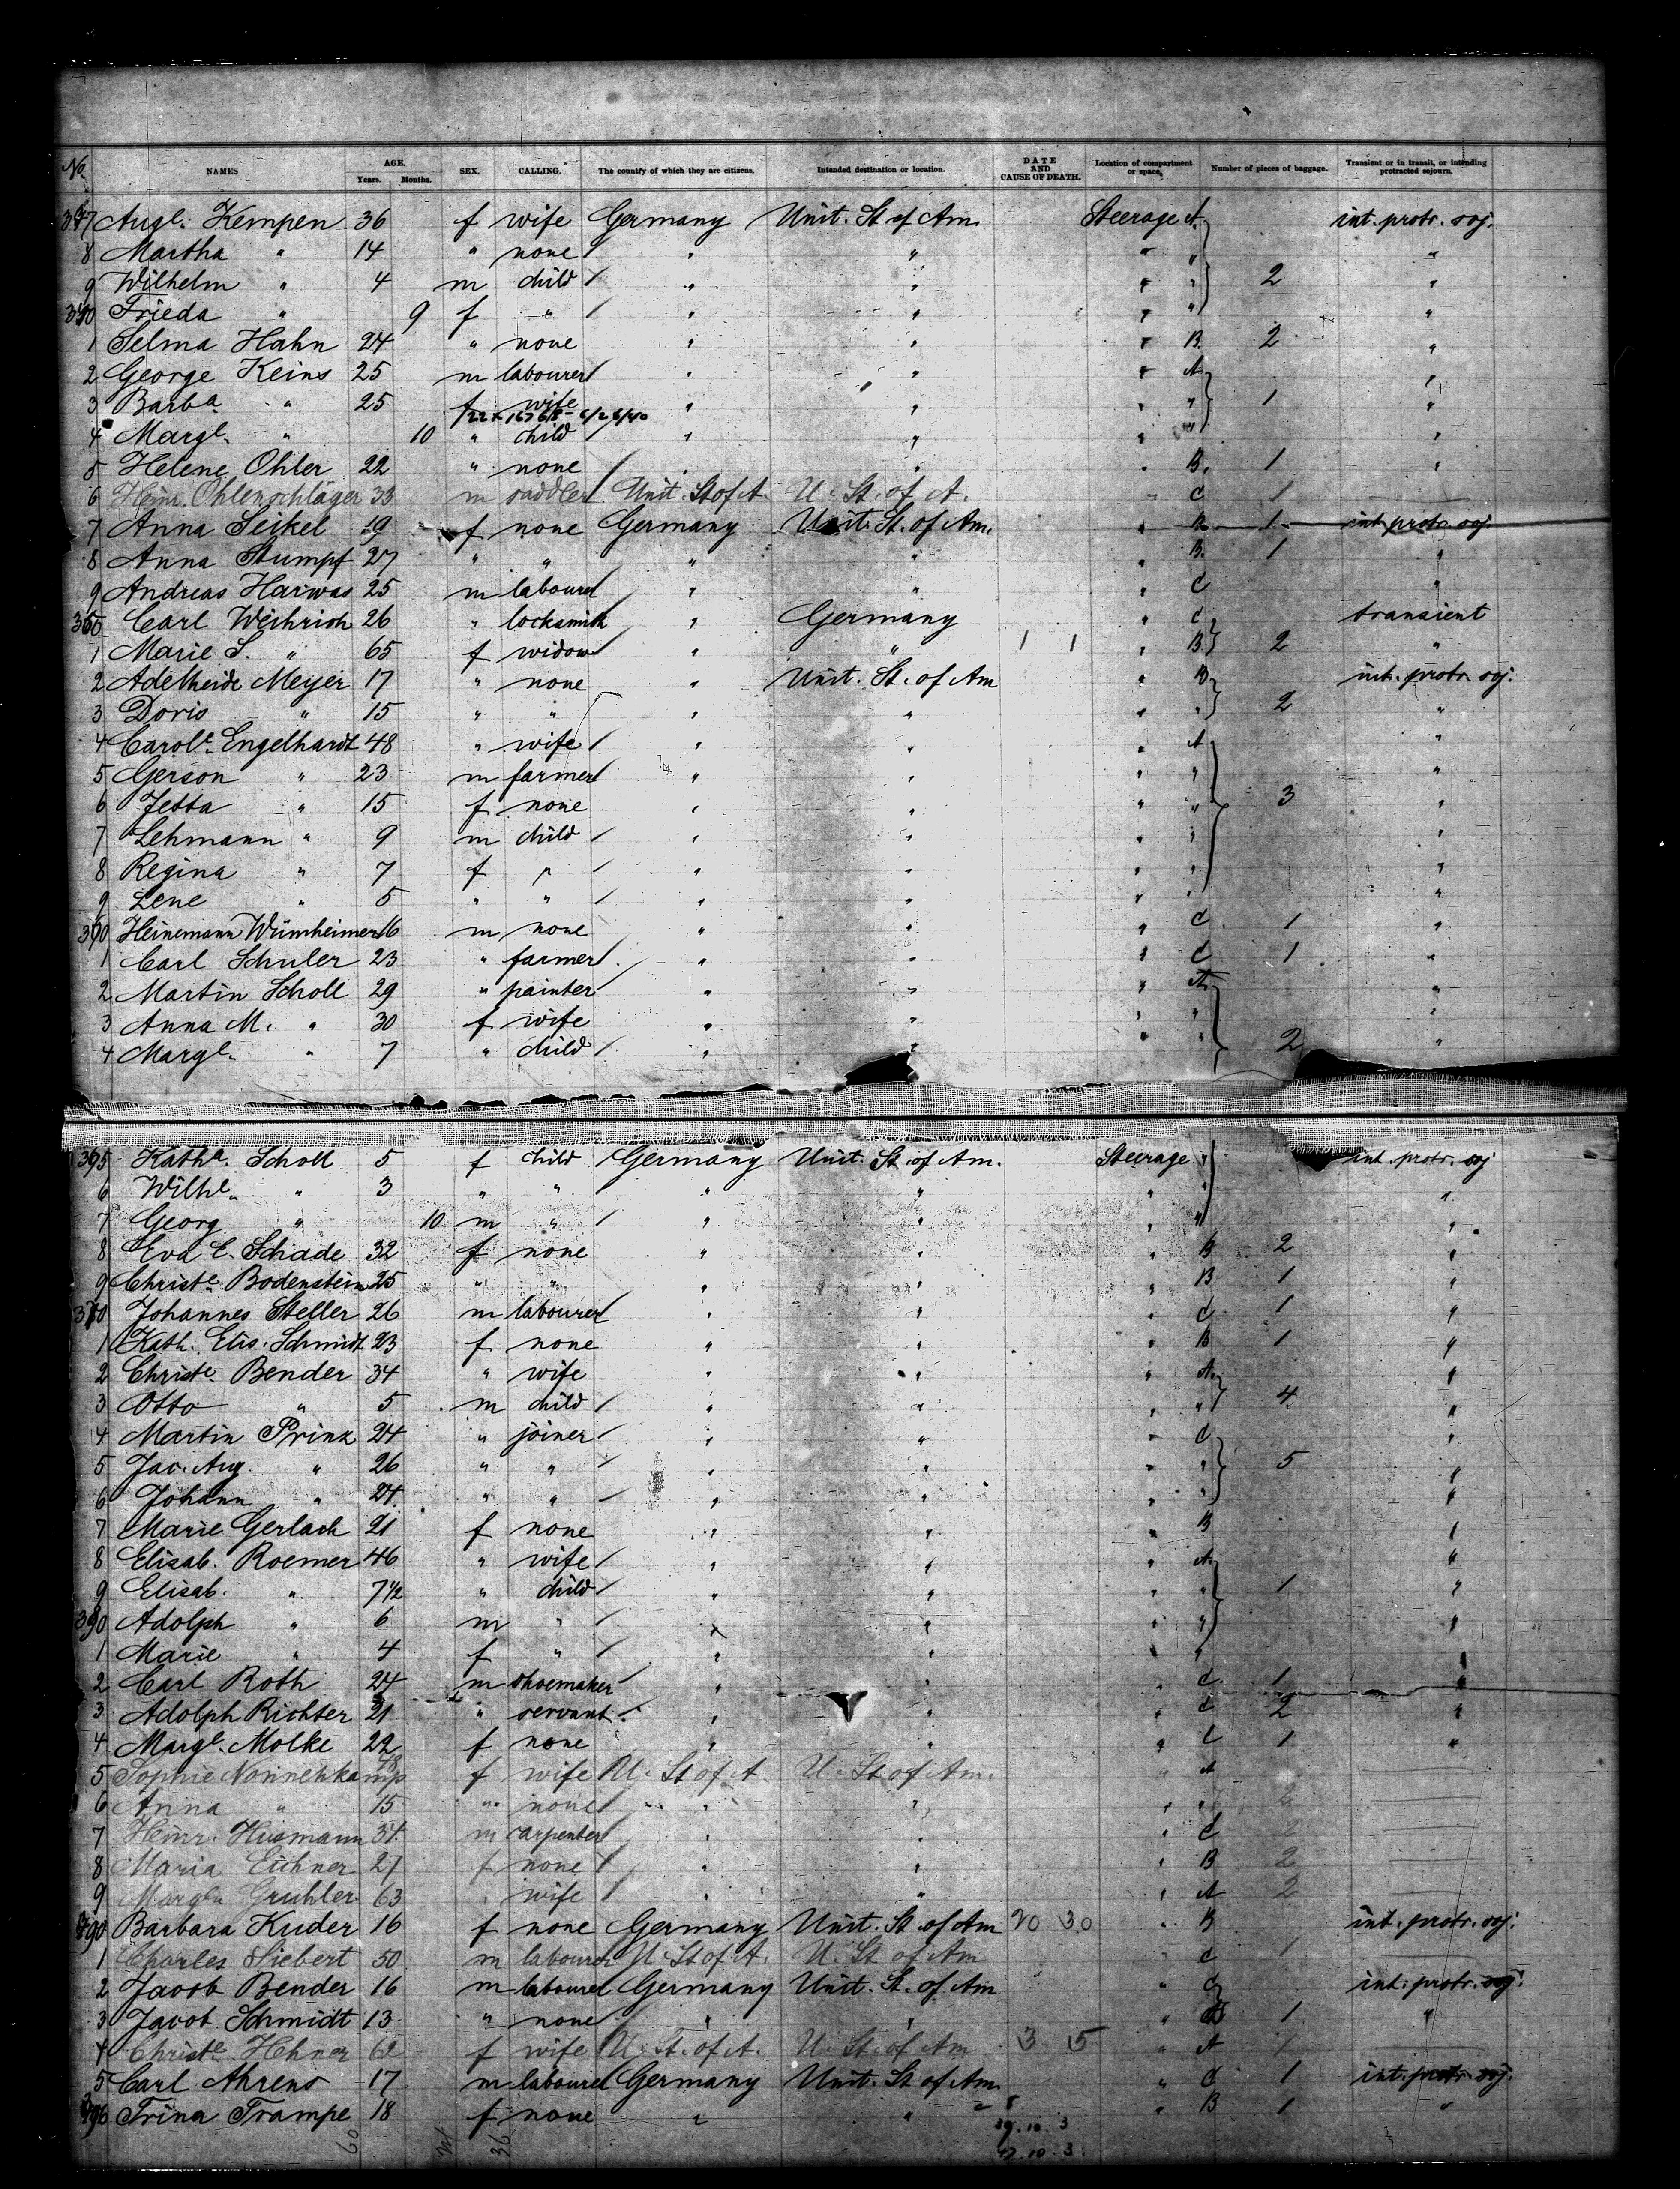 No. NAMES AGE. Years. Months. SEX. CALLING. The country of which they are citizens. Intended destination or location. DATE AND CAUSE OF DEATH. Location of compartment or space. Number of pieces of baggage. Transient or in transit, or intending protracted sojourn.
Augl. Kempen 36 f wife Germany Unit. St. of Am. Steerage A. int. protr. soj.
8 Martha " 14 " none " " " " "
9 Wilhelm " 4 m child " " " " 2 "
Frieda " 9 f " " " " " "
1 Selma Hahn 24 " none " " " B. 2 "
2 George Keins 25 m labourer " " " A "
3 Barba. " 25 f wife " " " " 1 "
4 Margl. " 10 " child " " " " "
5 Helene Ohler 22 " none " " " B. 1 "
6 Heinr. Ohlenschläger 33 m saddler Unit. St of A. U. St. of A. " C 1
7 Anna Seikel 19 f none Germany Unit. St. of Am. " B. 1 int. protr. soj.
8 Anna Stumpf 27 " " " " " B. 1 "
9 Andreas Harwas 25 m labourer " " " C "
Carl Weihrich 26 " locksmith " Germany " C transient
1 Marie S. " 65 f widow " " 1 1 " B 2 "
2 Adelheide Meyer 17 " none " Unit. St. of Am " B int. protr. soj.
3 Doris " 15 " " " " " " 2 "
4 Carole. Engelhardt 48 " wife " " " A "
5 Gerson " 23 m farmer " " " " "
6 Jetta " 15 f none " " " " 3 "
7 Lehmann " 9 m child " " " " "
8 Regina " 7 f " " " " " "
9 Lene " 5 " " " " " " "
Heinemann Wümheimer 16 m none " " " C 1 "
1 Carl Schuler 23 " farmer " " " C 1 "
2 Martin Scholl 29 " painter " " " A "
3 Anna M. " 30 f wife " " " " "
4 Margl. " 7 " child " " " " 2 "
Katha. Scholl 5 f child Germany Unit. St. of Am. Steerage " int. protr. soj
6 Wilhl. " 3 " " " " " " "
7 Georg " 10 m " " " " " "
8 Eva E. Schade 32 f none " " " B 2 "
9 Christe. Bodenstein 25 " " " " " B 1 "
Johannes Steller 26 m labourer " " " C 1 "
1 Kath. Elis. Schmidt 23 f none " " " B 1 "
2 Christe. Bender 34 " wife " " " A. "
3 Otto " 5 m child " " " " 4 "
4 Martin Prinz 24 " joiner " " " C "
5 Jac. Aug. " 26 " " " " " " 5 "
6 Johann " 24. " " " " " " "
7 Marie Gerlach 21 f none " " " B "
8 Elisab. Roemer 46 " wife " " " A. "
9 Elisab. " 7½ " child " " " " 1 "
Adolph " 6 m " " " " " "
1 Marie " 4 f " " " " " "
2 Carl Roth 24 m shoemaker " " " C 1 "
3 Adolph Richter 21 " servant " " " C 2 "
4 Margl. Molke 22 f none " " " C 1 "
5 Sophie Nonnenkamp f wife U. St of A. U. St of Am. " A
6 Anna " 15 " none " " " " 2
7 Heinr. Husmann 34. m carpenter " " " C 2
8 Maria Eichner 27 f none " " " B 2
9 Margl. Gruhler 63 " wife " " " A 2
Barbara Kuder 16 f none Germany Unit. St. of Am 20 30 " B int. protr. soj.
1 Charles Siebert 50 m labourer U. St of A. U. St of Am " C 1
2 Jacob Bender 16 m labourer Germany Unit. St. of Am " C int. protr. soj.
3 Jacob Schmidt 13 " none " " " 1 "
4 Christe. Hehner 62 f wife U. St. of A. U. St. of Am 3 5 " A 1
5 Carl Ahrens 17 m labourer Germany Unit. St of Am. " C 1 int. protr. soj.
Trina Trampe 18 f none " " " B 1 "
60 36